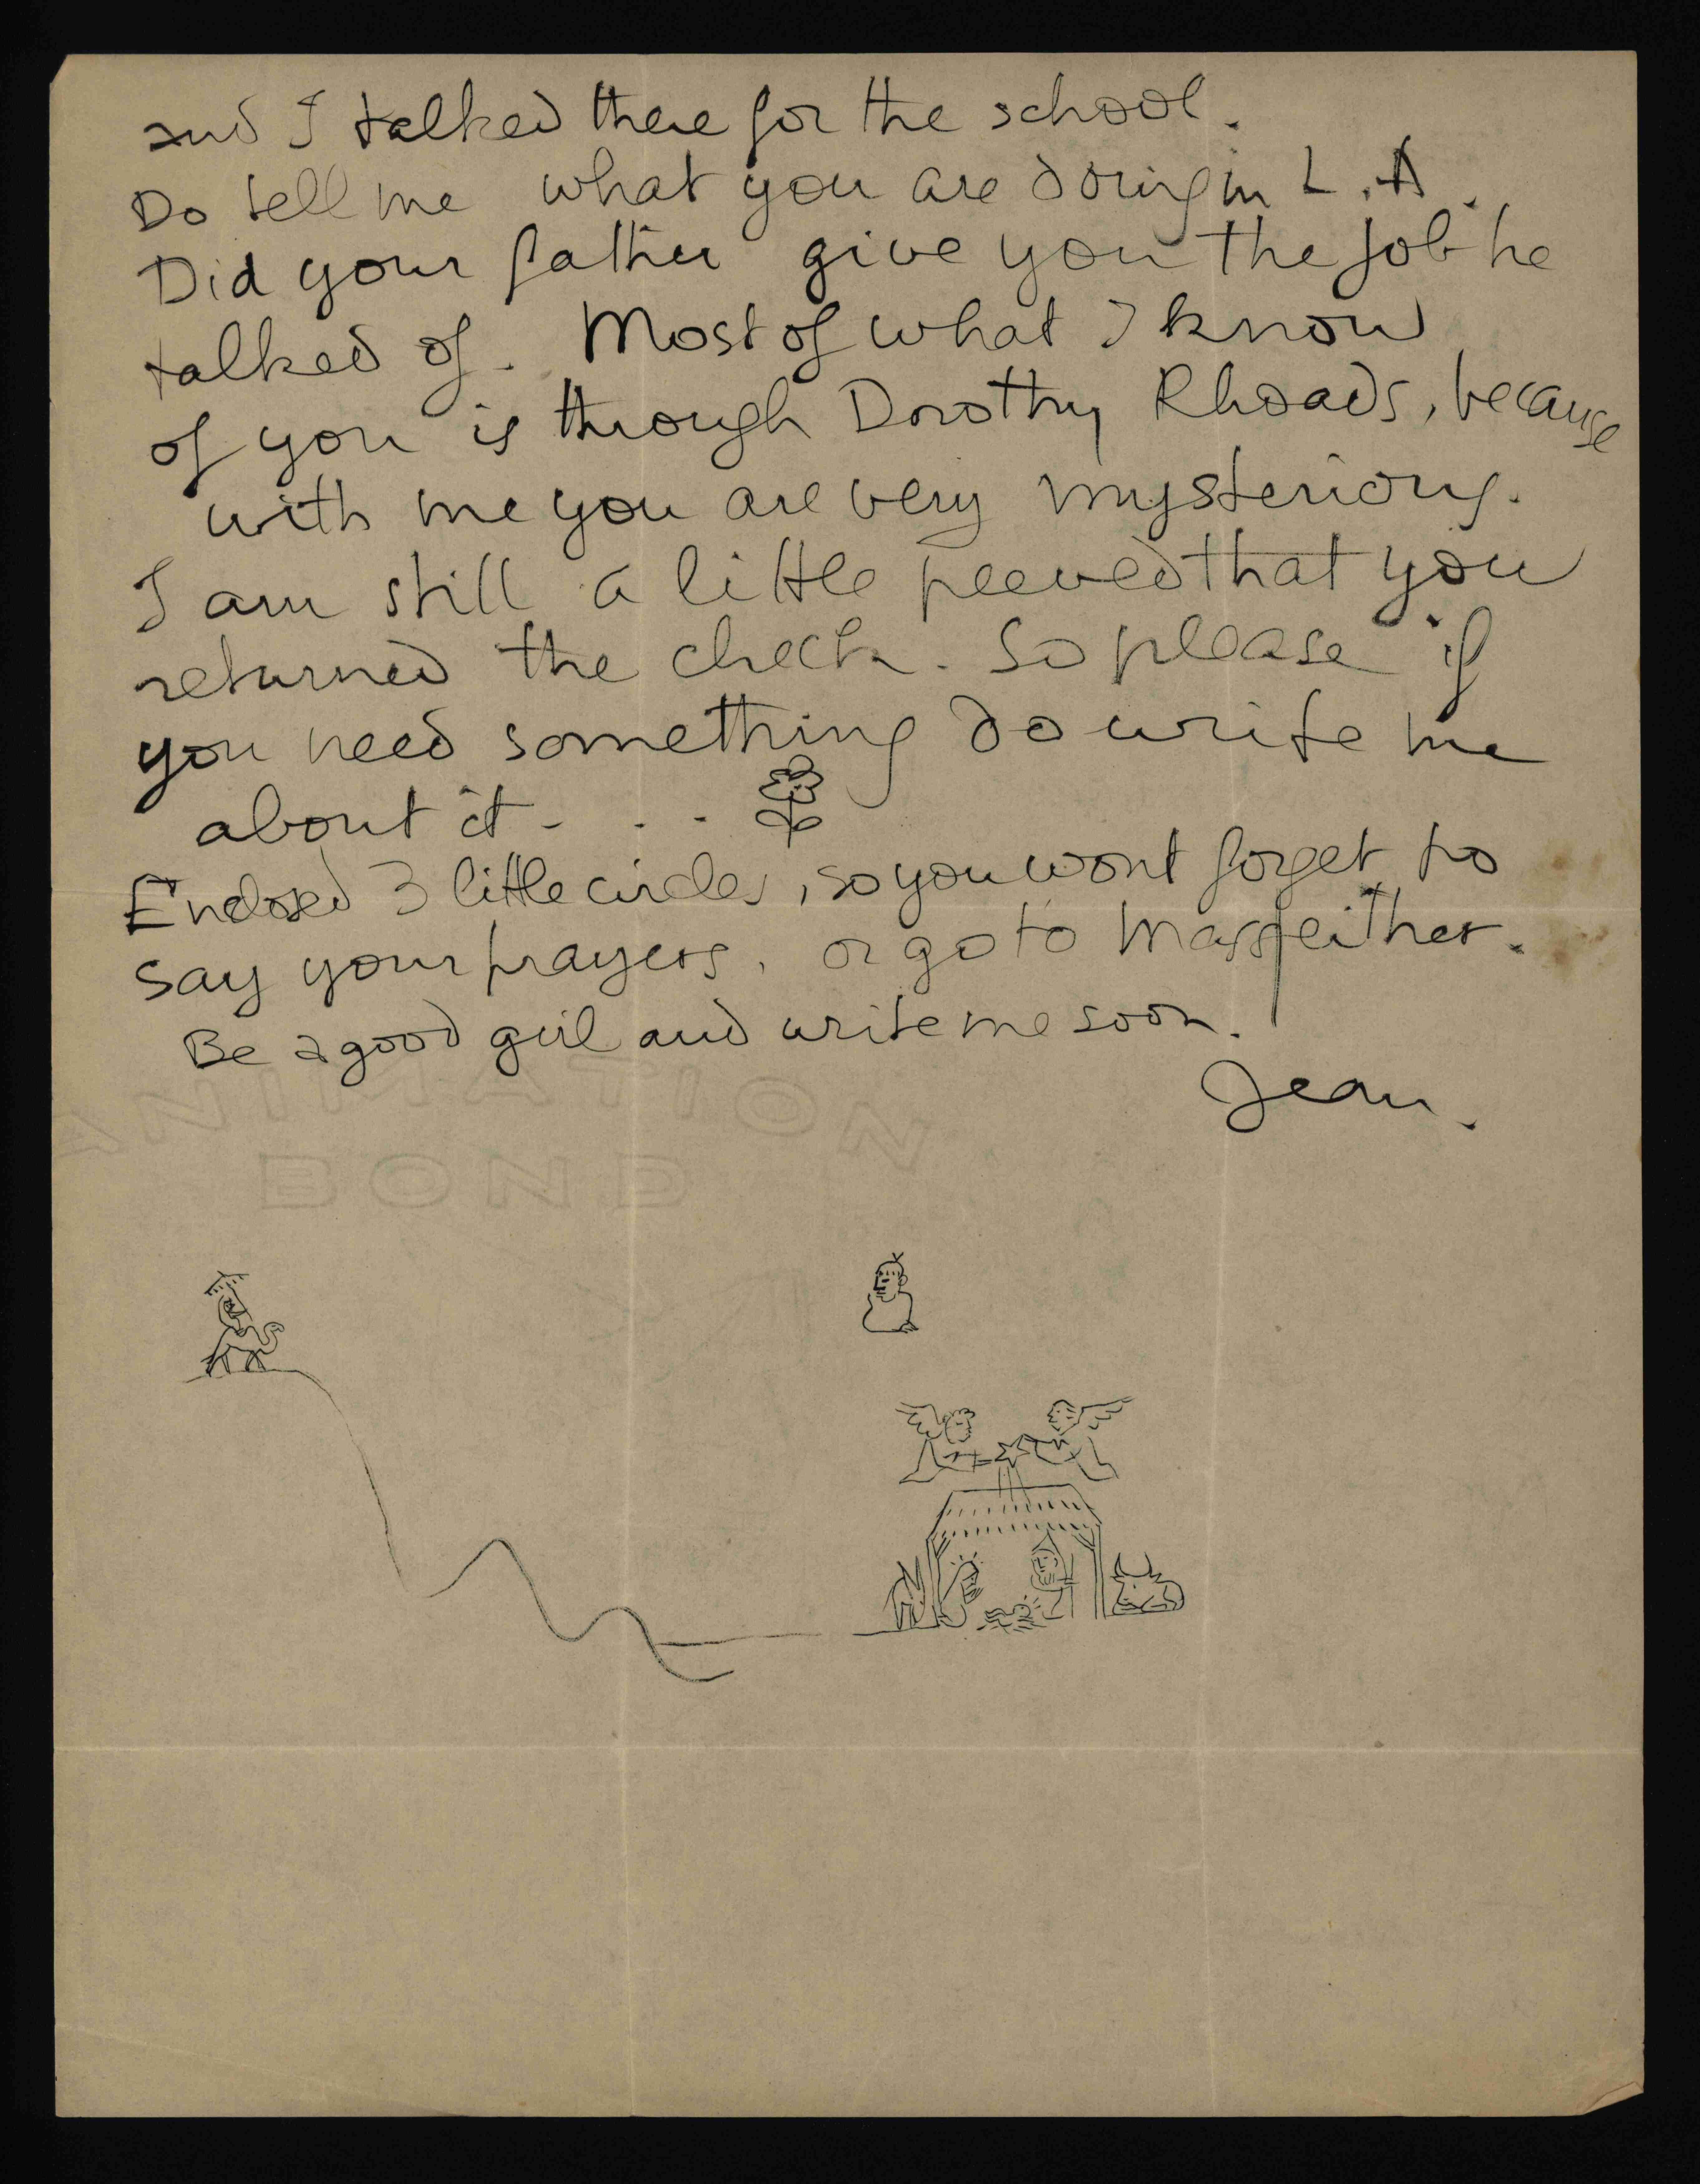 and I talked there for the school.
Do tell me what you are doing in L.A.
Did your father give you the job he
talked of. Most of what I know
of you is through Dorothy Rhoads, because
with me you are very mysterious.
I am still a little peeved that you
returned the check. So please if
you need something do write me
about it - . . -
Enclosed 3 little circles, so you wont forget to
say your prayers, or go to Mass either.
Be a good girl and write me soon.
Jean.
ANIMATION
BOND